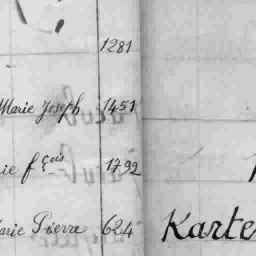 1281
Marie Joseph 1451
ie fçois 1792
arie Pierre 624
Karte